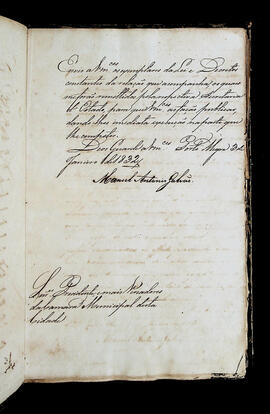 Envio a Vm.ces os exemplares da Lei e Decretos
constantes da relação que acompanha, os quaes
me forão remettidos pela respectiva Secretaria
d'Estado, para que Vm.ces os fação publicar,
dando-lhes immediata execução na parte que
lhe competir.
Deos Guarde a Vm.ces Porto Alegre 3 de
Janeiro de 1832
Manoel Antonio Galvão
Snr.es Presidente e mais Vereadores
da Camara Municipal desta
Cidade